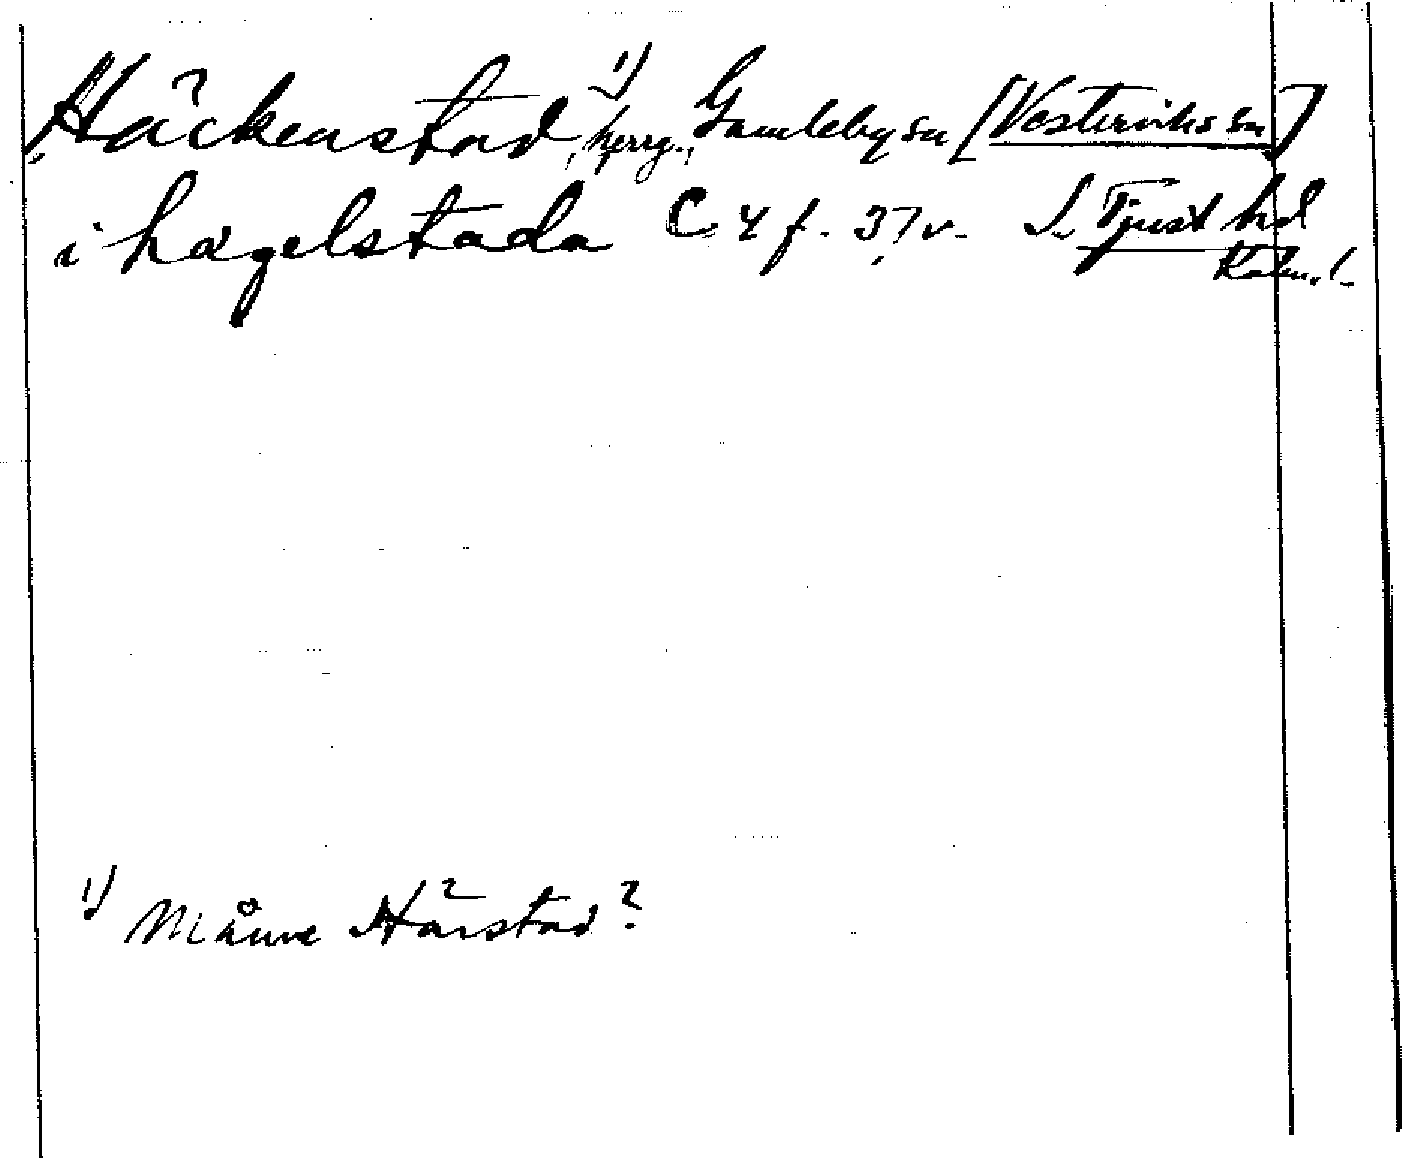 Häckenstad¹⁾, herrg., Gamleby sn [Västerviks sn]
i hagelstada C 4 f. 37 v. S. Tjust hd
Kalm. l.
¹⁾ Månne Hårstad?